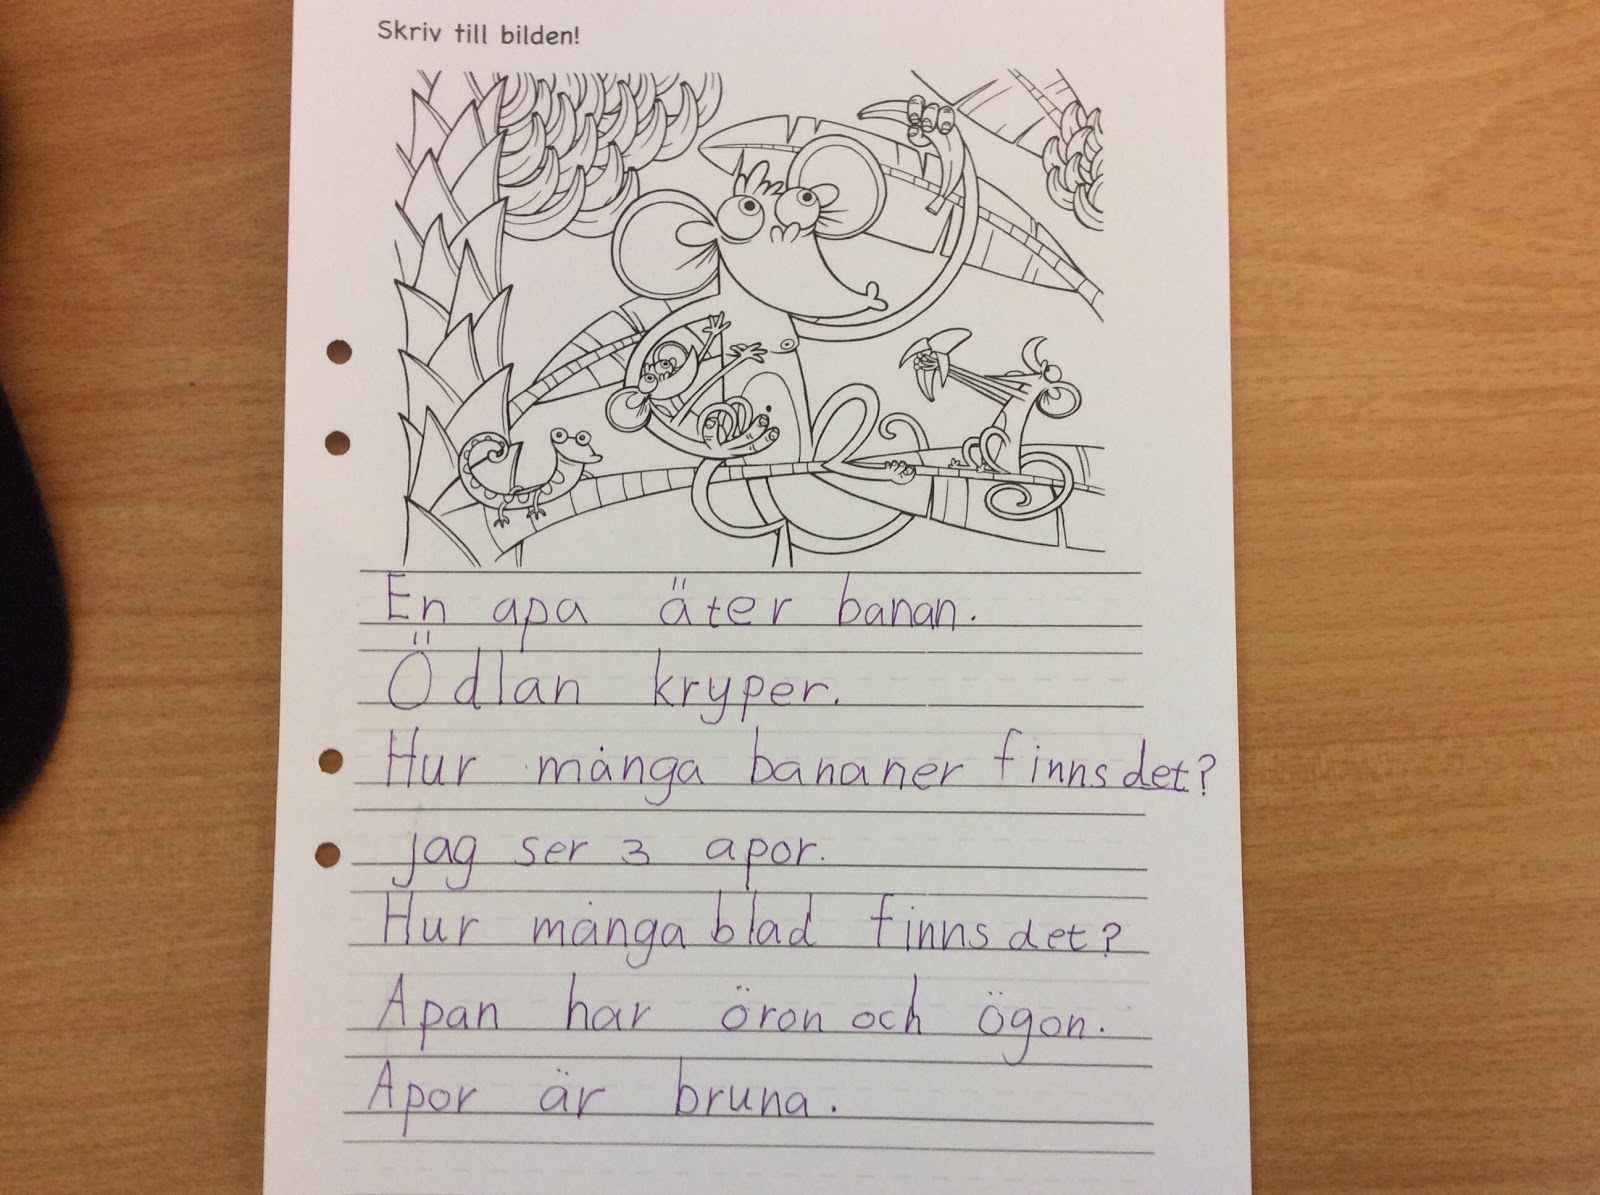 Skriv till bilden!
En apa äter banan.
Ödlan kryper.
Hur många bananer finns det?
jag ser 3 apor.
Hur många blad finns det?
Apan har öron och ögon.
Apor är bruna.